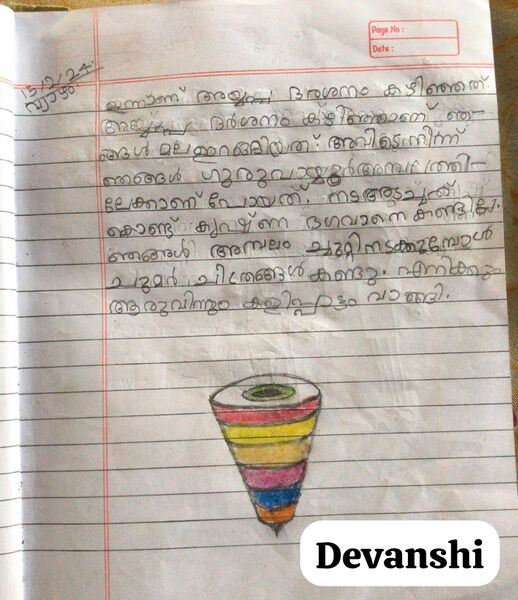 Page No :
Date :
13/2/24
വ്യാഴം
ഇന്നാണ് അയ്യപ്പ ദർശനം കഴിഞ്ഞത്.
അയ്യപ്പ ദർശനം കഴിഞ്ഞാണ് ഞ-
ങ്ങൾ മലഇറങ്ങിയത്. അവിടെനിന്ന്
ഞങ്ങൾ ഗുരുവായൂർഅമ്പലത്തി-
ലേക്കാണ് പോയത്. നടഅടച്ചത്
കൊണ്ട് കൃഷ്ണ ഭഗവാനെ കണ്ടില്ല.
ഞങ്ങൾ അമ്പലം ചുറ്റിനടക്കുമ്പോൾ
ചുമർ ചിത്രങ്ങൾ കണ്ടു. എനിക്കും
ആരുവിനും കളിപ്പാട്ടം വാങ്ങി.
Devanshi